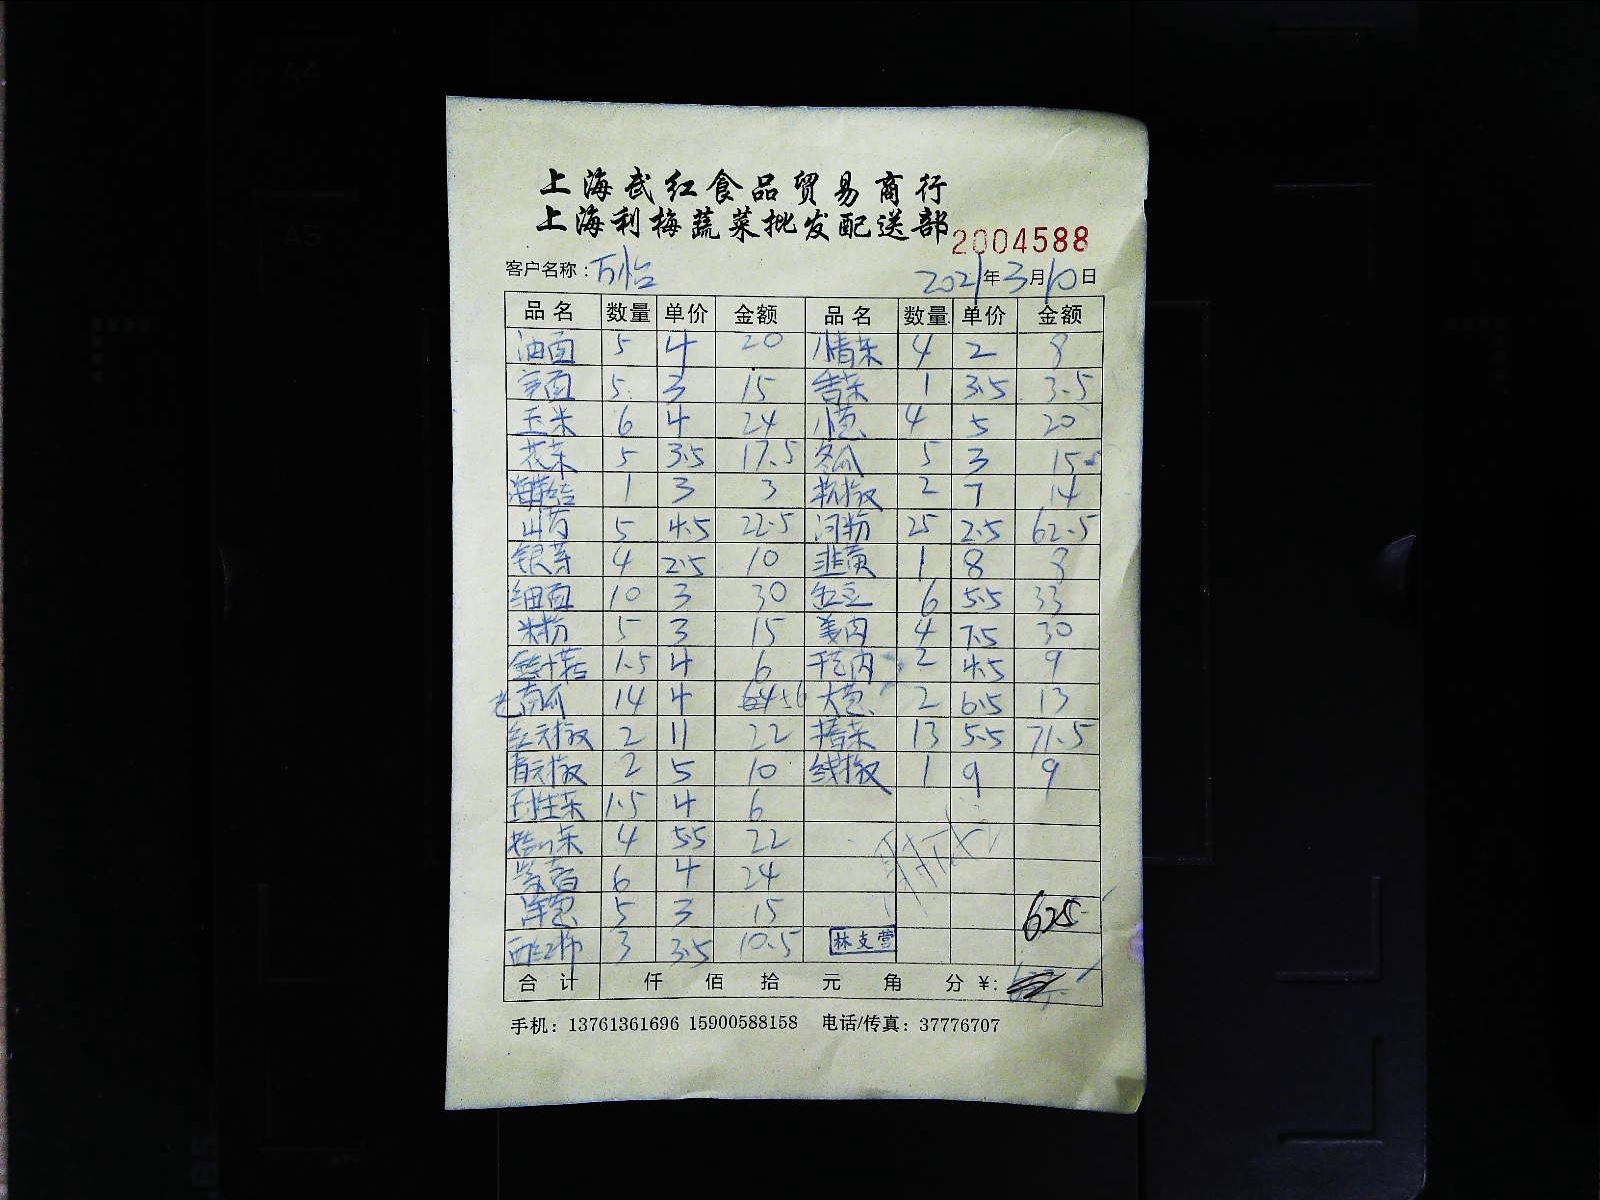 上海武红食品贸易商行
上海利梅蔬菜批发配送部
2004588
客户名称：万怡 2021年3月10日
品名 数量 单价 金额 品名 数量 单价 金额
油面 5 4 20 4 2 8
5 3 15 1 3.5 3.5
玉米 6 4 24 小葱 4 5 20
花菜 5 3.5 17.5 冬瓜 5 3 15
海带结 1 3 3 杭椒 2 7 14
山药 5 4.5 22.5 河粉 25 2.5 62.5
银芽 4 2.5 10 韭黄 1 8 8
细面 10 3 30 缸豆 6 5.5 33
米粉 5 3 15 姜肉 4 7.5 30
1.5 4 6 2 4.5 9
老南瓜 14 4 56 大葱 2 6.5 13
红元椒 2 11 22 13 5.5 71.5
青元椒 2 5 10 线椒 1 9 9
1.5 4 6
4 5.5 22
6 4 24
洋葱 5 3 15 625
西红柿 3 3.5 10.5 林支营
合计 仟 佰 拾 元 角 分 ¥:
手机：13761361696 15900588158 电话/传真：37776707